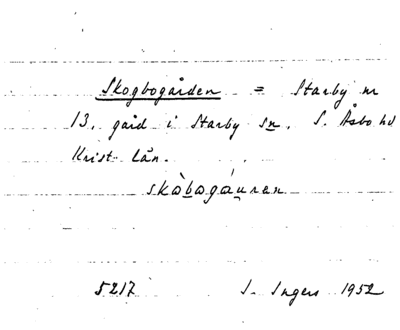 Skogbogården = Starby nr
13, gård i Starby sn, S. Åsbo hd
Krist. län.
skòbogáuren
5217 I. Ingers 1952